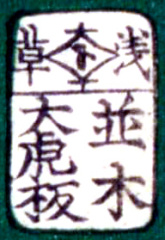 浅草
並木
大虎板